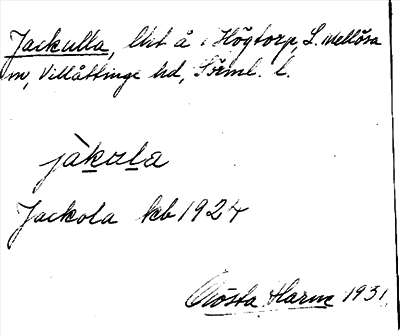 Jackulla, lht å i Högtorp, L. Mellösa
sn, Villåttinge hd, Sörml. l.
jàkula
Jackola kb 1924
Gösta Harm 1931.